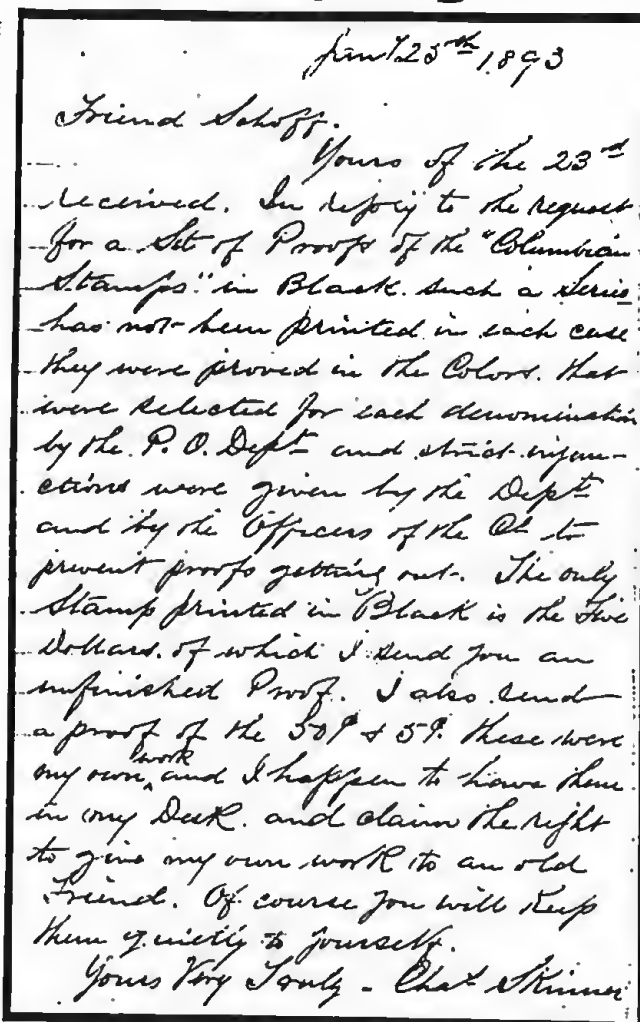 Jany 25th 1893
Friend Schoff.
Yours of the 23rd
received. In reply to the request
for a Set of Proofs of the "Columbian
Stamps." in Black. such a series
has not been printed in each case
they were proved in the Colors. that
were selected for each denomination
by the P. O. Dept and strict injun-
ctions were given by the Dept
and by the Officers of the Co to
prevent proofs getting out. The only
Stamp printed in Black is the Five
Dollars. of which I send you an
unfinished Proof. I also send
a proof of the 50¢ & 5¢. these were
my own work and I happen to have them
in my Desk. and claim the right
to give my own work to an old
Friend. Of course you will Keep
them quietly to yourself.
Yours Very Truly - Chas Skinner